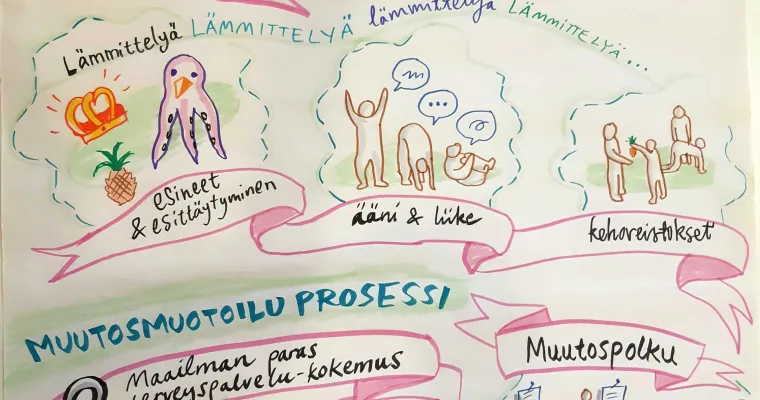 Lämmittelyä LÄMMITTELYÄ lämmittelyä LÄMMITTELYÄ...
esineet
& esittäytyminen
ääni & liike
kehoveistokset
MUUTOSMUOTOILU PROSESSI
Maailman paras
terveyspalvelu-kokemus
Muutospolku